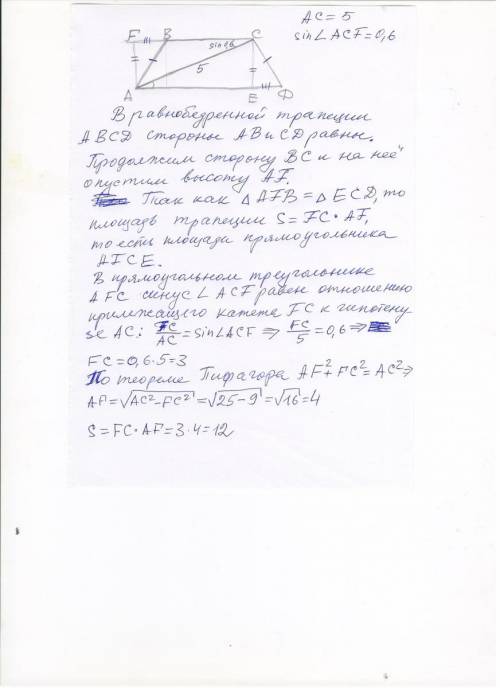 AC = 5
sin∠ACF = 0,6
F B C
sin 0,6
5
A E D
В равнобедренной трапеции
ABCD стороны AB и CD равны.
Продолжим сторону BC и на неё
опустим высоту AF.
Так как △AFB = △ECD, то
площадь трапеции S = FC · AF,
то есть площади прямоугольника
AFCE.
В прямоугольном треугольнике
AFC синус ∠ACF равен отношению
прилежащего катета FC к гипотену
зе AC: FC/AC = sin∠ACF ⇒ FC/5 = 0,6 ⇒
FC = 0,6 · 5 = 3
По теореме Пифагора AF² + FC² = AC² ⇒
AF = √AC² - FC² = √25 - 9 = √16 = 4
S = FC · AF = 3 · 4 = 12